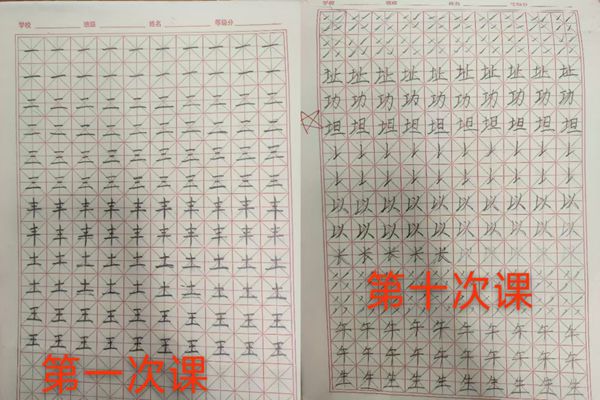 学校 班级 姓名 等级分
一 一 一 一 一 一 一 一 一 一
一 一 一 一 一 一 一 一 一 一
二 二 二 二 二 二 二 二 二 二
二 二 二 二 二 二 二 二 二 二
三 三 三 三 三 三 三 三 三 三
三 三 三 三 三 三 三 三 三 三
丰 丰 丰 丰 丰 丰 丰 丰 丰 丰
丰 丰 丰 丰 丰 丰 丰 丰 丰 丰
土 土 土 土 土 土 土 土 土 土
土 土 土 土 土 土 土 土 土 土
王 王 王 王 王 王 王 王 王 王
王 王 王 王 王 王 王 王 王 王
第一次课
学校 班级 姓名 等级分
址 址 址 址 址 址 址 址 址 址
功 功 功 功 功 功 功 功 功 功
坦 坦 坦 坦 坦 坦 坦 坦 坦 坦
以 以 以 以 以 以 以 以 以 以
以 以 以 以 以 以 以 以 以 以
长 长 长 长 长
第十次课
午 午 午 午 午 午 午 午 午 午
午 午 午 午 午 午 午 午 午 午
生 生 生 生 生 生 生 生 生 生